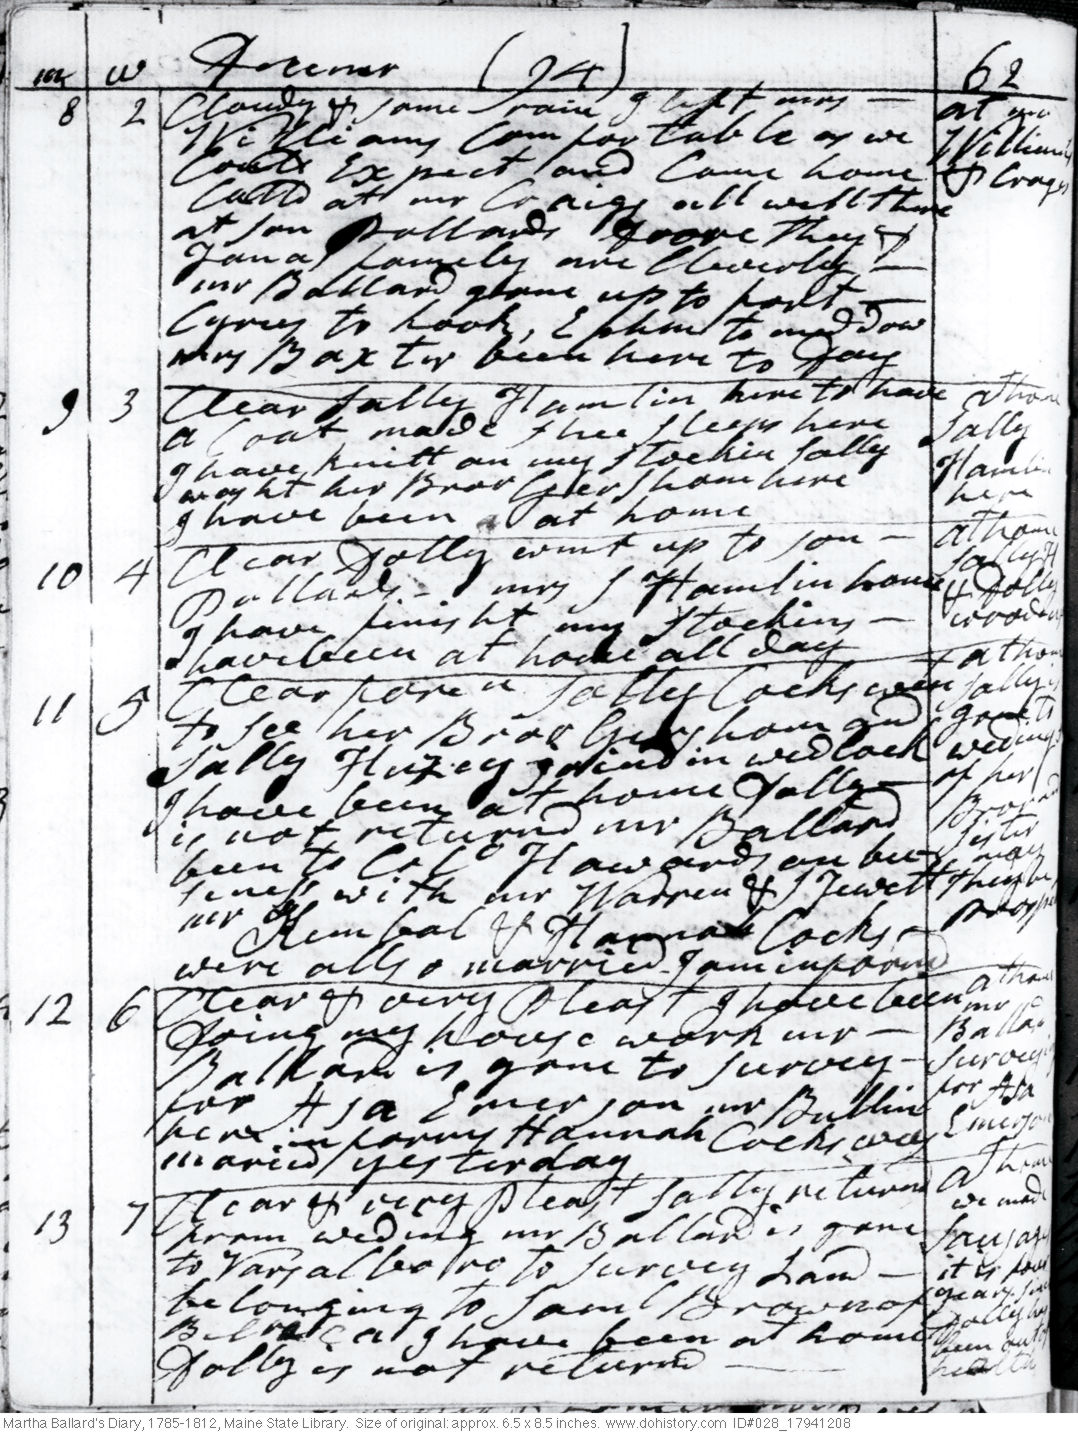 m w Decemr (94) 62
8 2 Cloudy & some rain I left mrs — at mr
Williams Comfortable as we Williams
Could Expect and Came home & Crages
Calld at mr Craigs all well there
at son Pollards Foore They &
Jona famely are Cleverly —
mr Ballard gone up to fort —
Cyrus to hook, Ephm to meddow
mrs Baxter been here to Day
9 3 Clear Sally Hamlin here to have at home
a Coat made shee sleeps here Sally
I have knitt on my stockin Sally Hamlin
 her Bror Gershom here here
I have been at home
10 4 Clear Dolly went up to son — at home
Pollards — mrs S Hamlin home Sally H
I have finisht my stockins — & Dolly
I have been at home all day
11 5 Clear fore n Sally Cocks went at home
to see her Bror Gershom and Sally is
Sally Huzey joind in wedlock gone to
I have been at home Dolly — weding
is not returnd mr Ballard of her
been to Colo Howards on bu- Bror and
siness with mr Warren & S Jewett Sister
mr Kimbal & Hannah Cocks — may they be
were allso married I am informd
12 6 Clear & very Pleast I have been at home
Doing my house work mr — mr
Ballard is gone to survey — Ballard
for Asa Emerson mr Bullin surveying
here in form Hannah Cocks was for Asa
maried yesterday Emerson
13 7 Clear & very Pleast Sally returnd at home
from weding mr Ballard is gone we made
to Varsalboro to survey Land — Sausages
belonging to Saml Brown of it is four
Bilraca I have been at home years since
Dolly is not returnd — Dolly has
been out of
health
Martha Ballard's Diary, 1785-1812, Maine State Library. Size of original: approx. 6.5 x 8.5 inches. www.dohistory.com ID#028_17941208